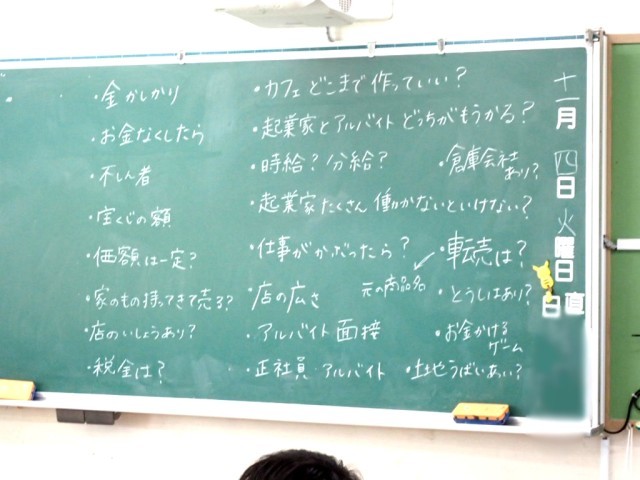 十一月四日火曜日
日直
・カフェ どこまで作っていい？
・起業家とアルバイト どっちがもうかる？
・時給？分給？
・倉庫会社
あり？
・起業家たくさん働かないといけない？
・仕事がかぶったら？
・転売は？
元の商品名
・店の広さ
・とうしはあり？
・アルバイト面接
・お金かける
ゲーム
・正社員・アルバイト
・土地うばいあい？
・金かしかり
・お金なくしたら
・不しん者
・宝くじの額
・価額は一定？
・家のもの持ってきて売る？
・店のいしょうあり？
・税金は？